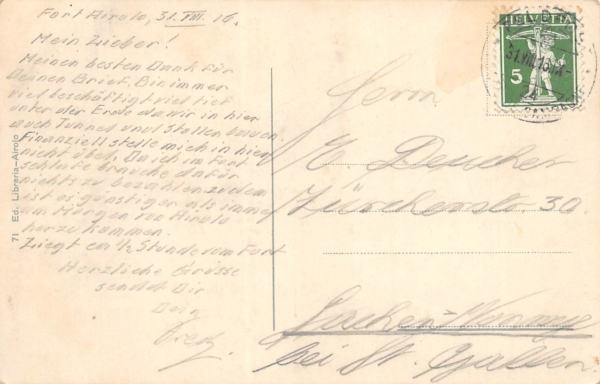 Fort Airolo, 31. VIII. 16.
Mein Lieber!
Meinen besten Dank für
Deinen Brief. Bin immer
viel beschäftigt viel tief
unter der Erde da wir in hier
auch Tunnel und Stollen bauen.
Finanziell stelle mich in hier
nicht übel, Da ich im Fort
schlafe brauche dafür
nichts zu bezahlen zudem
ist es günstiger als immer
am Morgen von Airolo
herzukommen.
Liegt ca ½ Stunde vom Fort
Herzliche Grüsse
sendet Dir
Dein
71 Ed. Libreria-Airolo
HELVETIA
5
31.VIII.16
Herrn
E. Deucher
Zürcherstr. 30.
Lachen-Vonwyl
bei St. Gallen.